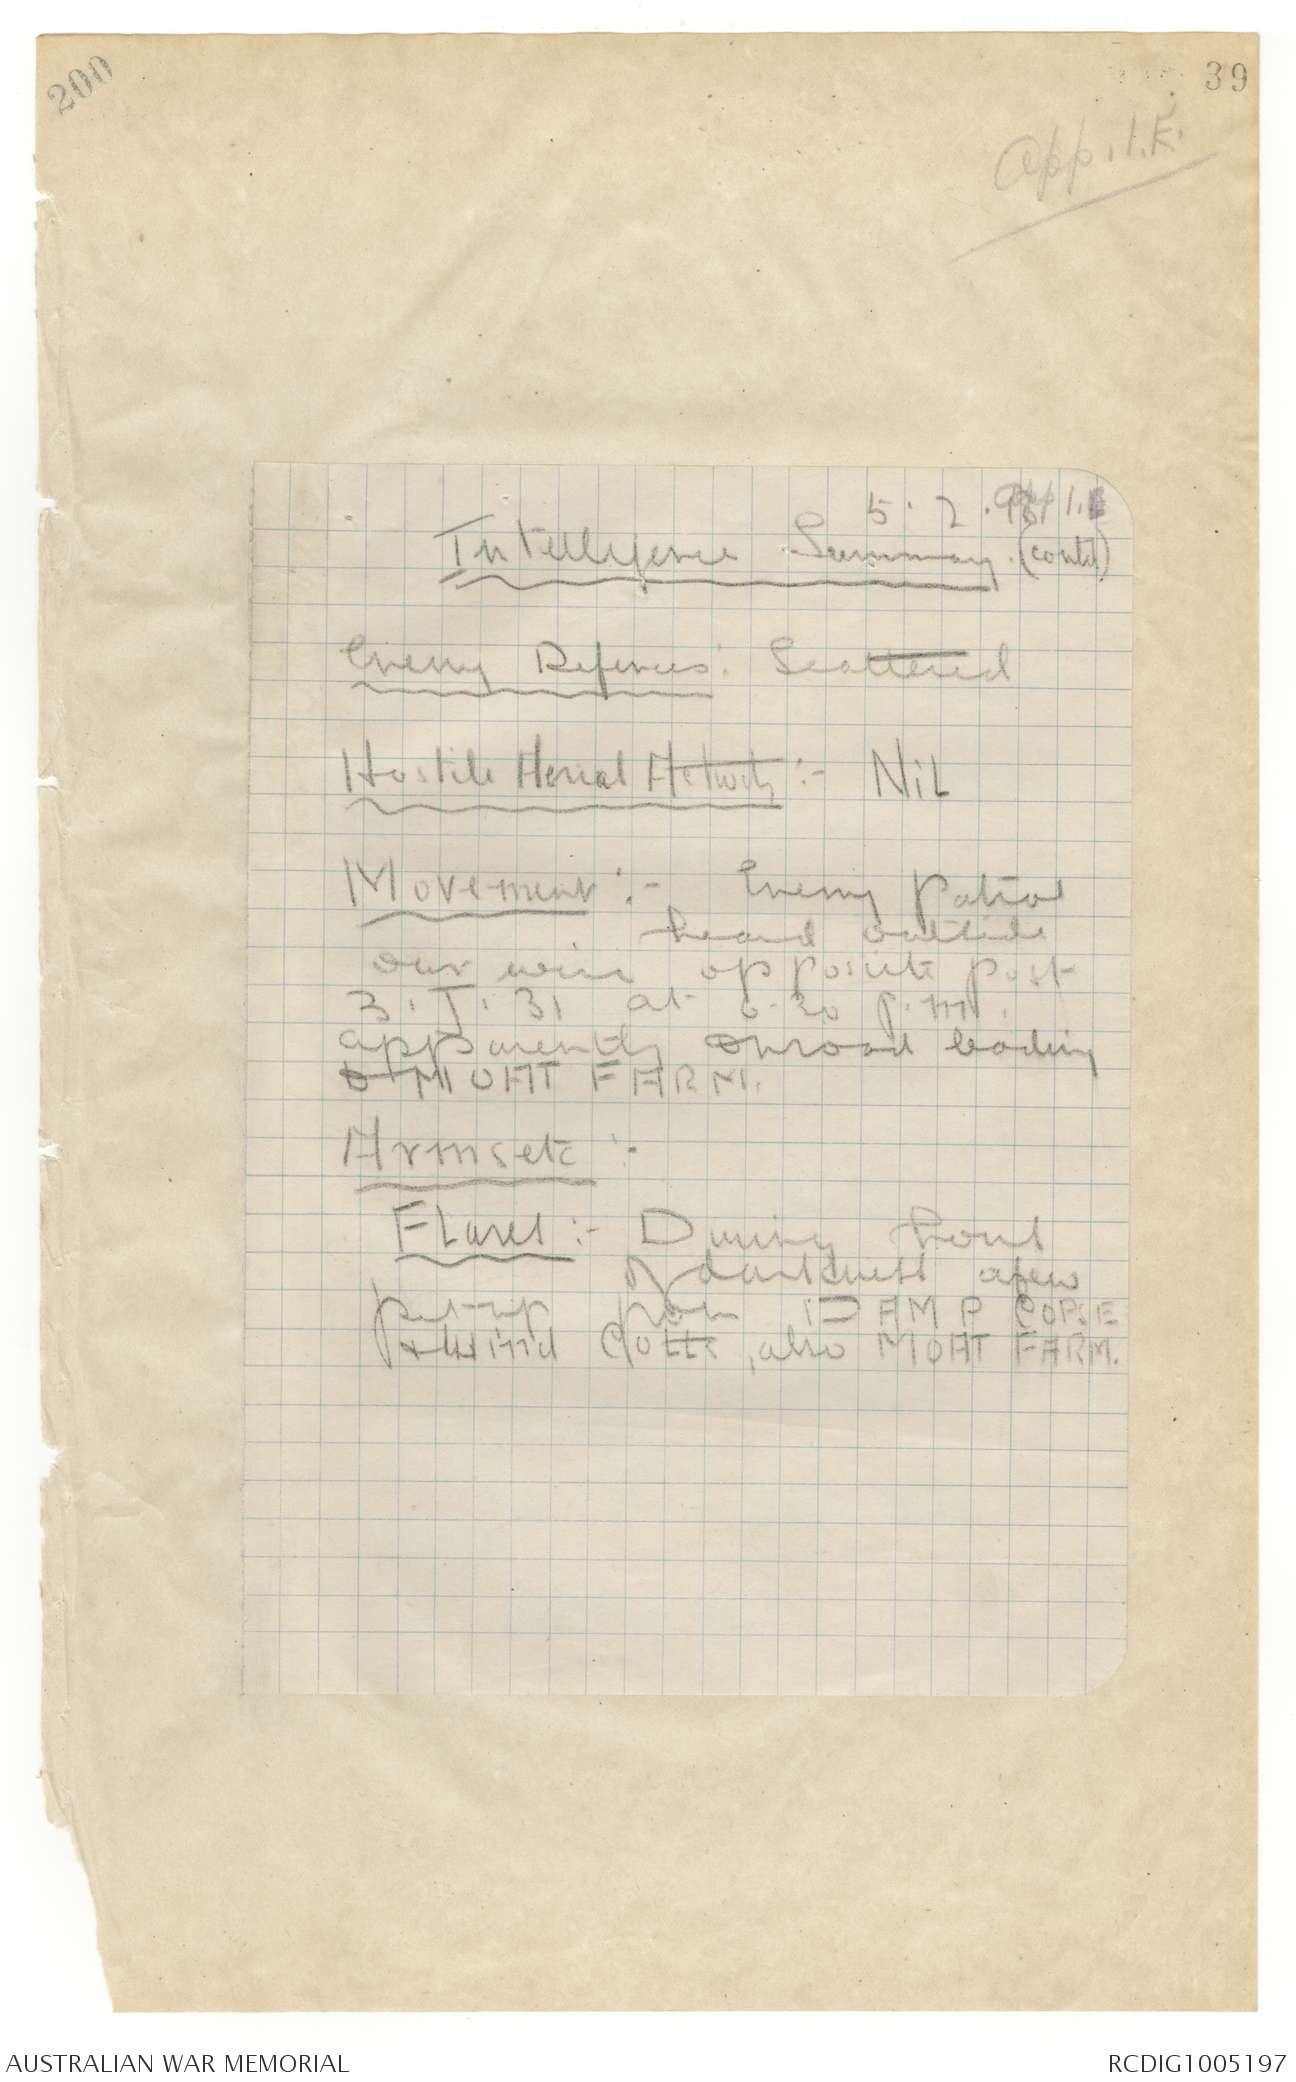 200
39
App. 1.E.
5.2.18 App 1.E
Intelligence Summary. (contd)
Enemy Defences: Scattered
Hostile Aerial Activity :- NiL
Movement :- Enemy Patrol
heard outside
our wire opposite post
3.J.31 at 6.30 p.m.
apparently on road leading
to MOAT FARM.
Arms etc :-
FLares :- During hours
of darkness a few
put up from DAMP COPSE
also MOAT FARM.
AUSTRALIAN WAR MEMORIAL
RCDIG1005197